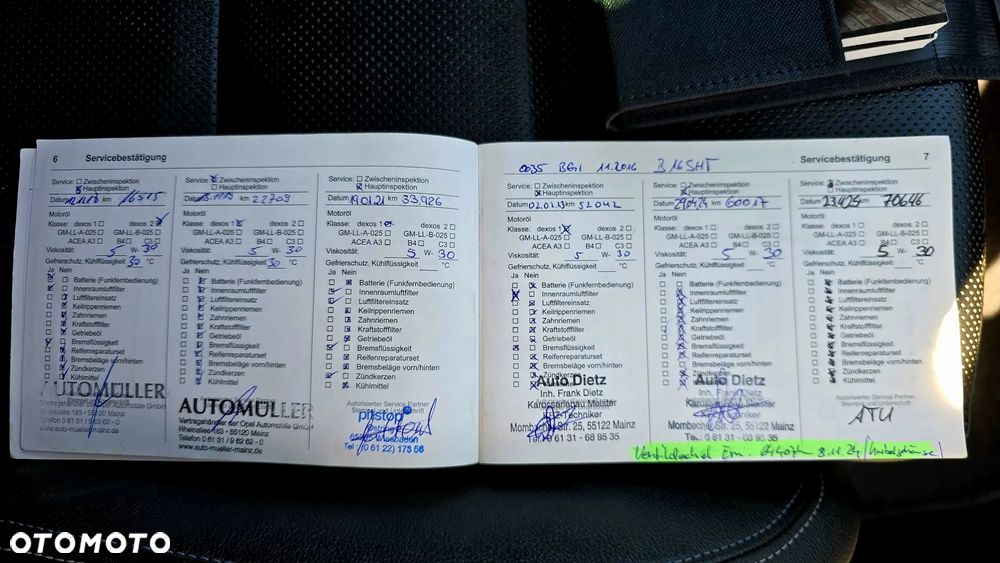 6 Servicebestätigung
Service: Zwischeninspektion
Hauptinspektion
Datum km 16515
Motoröl
Klasse: dexos 1 dexos 2
GM-LL-A-025 GM-LL-B-025
ACEA A3 B4 C3
Viskosität: 5 W- 30
Gefrierschutz, Kühlflüssigkeit 30 °C
Ja Nein
Batterie (Funkfernbedienung)
Innenraumluftfilter
Luftfiltereinsatz
Keilrippenriemen
Zahnriemen
Kraftstofffilter
Getriebeöl
Bremsflüssigkeit
Reifenreparaturset
Bremsbeläge vorn/hinten
Zündkerzen
Kühlmittel
AUTOMÜLLER
Vertragshändler der Opel Automobile GmbH
Rheinallee 183 · 55120 Mainz
Telefon 0 61 31 / 9 62 62 - 0
www.auto-mueller-mainz.de
Service: Zwischeninspektion
Hauptinspektion
Datum km 22709
Motoröl
Klasse: dexos 1 dexos 2
GM-LL-A-025 GM-LL-B-025
ACEA A3 B4 C3
Viskosität: 5 W- 30
Gefrierschutz, Kühlflüssigkeit 30 °C
Ja Nein
Batterie (Funkfernbedienung)
Innenraumluftfilter
Luftfiltereinsatz
Keilrippenriemen
Zahnriemen
Kraftstofffilter
Getriebeöl
Bremsflüssigkeit
Reifenreparaturset
Bremsbeläge vorn/hinten
Zündkerzen
Kühlmittel
AUTOMÜLLER
Vertragshändler der Opel Automobile GmbH
Rheinallee 183 · 55120 Mainz
Telefon 0 61 31 / 9 62 62 - 0
www.auto-mueller-mainz.de
Service: Zwischeninspektion
Hauptinspektion
Datum 19.01.21 km 33926
Motoröl
Klasse: dexos 1 dexos 2
GM-LL-A-025 GM-LL-B-025
ACEA A3 B4 C3
Viskosität: 5 W- 30
Gefrierschutz, Kühlflüssigkeit °C
Ja Nein
Batterie (Funkfernbedienung)
Innenraumluftfilter
Luftfiltereinsatz
Keilrippenriemen
Zahnriemen
Kraftstofffilter
Getriebeöl
Bremsflüssigkeit
Reifenreparaturset
Bremsbeläge vorn/hinten
Zündkerzen
Kühlmittel
Autorisierter Service Partner
pitstop
Wiesbaden
Tel. (0 61 22) 175 56
0035 BGI 11.2016 B16SHT
Servicebestätigung 7
Service: Zwischeninspektion
Hauptinspektion
Datum 02.01.23 km 52042
Motoröl
Klasse: dexos 1 dexos 2
GM-LL-A-025 GM-LL-B-025
ACEA A3 B4 C3
Viskosität: 5 W- 30
Gefrierschutz, Kühlflüssigkeit °C
Ja Nein
Batterie (Funkfernbedienung)
Innenraumluftfilter
Luftfiltereinsatz
Keilrippenriemen
Zahnriemen
Kraftstofffilter
Getriebeöl
Bremsflüssigkeit
Reifenreparaturset
Bremsbeläge vorn/hinten
Zündkerzen
Auto Dietz
Inh. Frank Dietz
Karosseriebau Meister
Techniker
Mombacher Str. 25, 55122 Mainz
Tel.: 0 61 31 - 68 95 35
Service: Zwischeninspektion
Hauptinspektion
Datum 29.04.24 km 60017
Motoröl
Klasse: dexos 1 dexos 2
GM-LL-A-025 GM-LL-B-025
ACEA A3 B4 C3
Viskosität: 5 W- 30
Gefrierschutz, Kühlflüssigkeit °C
Ja Nein
Batterie (Funkfernbedienung)
Innenraumluftfilter
Luftfiltereinsatz
Keilrippenriemen
Zahnriemen
Kraftstofffilter
Getriebeöl
Bremsflüssigkeit
Reifenreparaturset
Bremsbeläge vorn/hinten
Zündkerzen
Auto Dietz
Inh. Frank Dietz
Karosseriebau Meister
Techniker
Mombacher Str. 25, 55122 Mainz
Tel.: 0 61 31 - 68 95 35
Service: Zwischeninspektion
Hauptinspektion
Datum 23.4.25 km 70646
Motoröl
Klasse: dexos 1 dexos 2
GM-LL-A-025 GM-LL-B-025
ACEA A3 B4 C3
Viskosität: 5 W- 30
Gefrierschutz, Kühlflüssigkeit °C
Ja Nein
Batterie (Funkfernbedienung)
Innenraumluftfilter
Luftfiltereinsatz
Keilrippenriemen
Zahnriemen
Kraftstofffilter
Getriebeöl
Bremsflüssigkeit
Reifenreparaturset
Bremsbeläge vorn/hinten
Zündkerzen
Kühlmittel
Autorisierter Service Partner
Stempel und Unterschrift
ATU
Ventildeckel Ern. 8.11.24
OTOMOTO